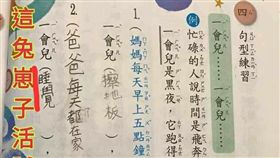 四 句型練習
例 一會兒……一會兒……
忙碌的人說時間是飛奔
一會兒是黑夜，它跑得
1. 媽媽每天早上五點鐘
一會兒 擦地板
2. 爸爸每天都在家
一會兒 睡覺
這兔崽子活